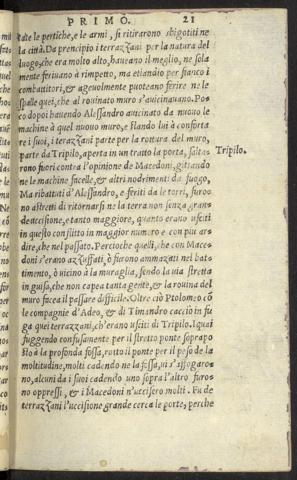 PRIMO. 21
tate le pertiche, e le armi, si ritirarono sbigotiti ne
la città. Da precipio i terazzani per la natura del
luogo, che era molto alto, haueano il meglio, ne sola
mente feriuano à rimpetto, ma etiandio per fianco i
combattitori, & ageuolmente puoteano ferire ne le
spalle quei, che al rouinato muro s'auicinauano. Po-
co dopoi hauendo Alessandro auicinato da nuouo le
machine à quel nuouo muro, e stando lui à conforta
re i suoi, i terazzani parte per la rottura del muro,
parte da Tripilo, aperta in un tratto le porta, salta-
Tripilo.
rono fuori contra l'opinione de Macedoni, gittando
ne le machine facelle, & altri nodrimenti da fuogo,
Ma ributtati d'Alessandro, e feriti da le torri, furo-
no astretti di ritornarsi ne la terra non senza gran-
de uccisione, e tanto maggiore, quanto erano usciti
in questo conflitto in maggior numero e con piu ar-
dire, che nel passato. Percioche quelli, che con Mace-
doni s'erano azzuffati, ò furono ammazzati nel bat-
timento, ò uicino à la muraglia, sendo la uia stretta
in guisa, che non capea tanta gente, & la rouina del
muro facea il passare difficile. Oltre ciò Ptolomeo cō
le compagnie d'Adeo, & di Timandro caccio in fu
ga quei terrazzani, ch'erano usciti di Tripilo. I quai
fuggendo confusamente per il stretto ponte soprapo
sto à la profonda fossa, rotto il ponte per il peso de la
moltitudine, molti cadendo ne la fossa, ui s'affogaro-
no, alcuni da i suoi cadendo uno sopra l'altro furo-
no oppressi, & i Macedoni n'uccisero molti. Fu de
terrazzani l'uccisione grande cerca le porte, perche